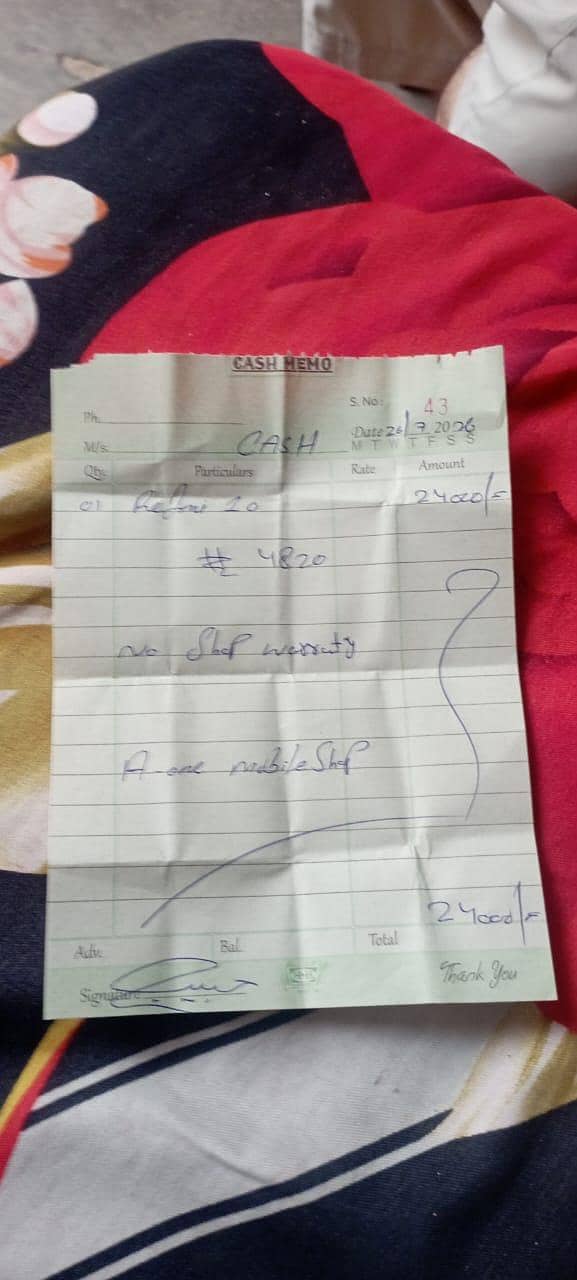 CASH MEMO
S. No: 43
Ph.
Date 26/7 2026
M/s. CASH
M T W T F S S
Qty. Particulars Rate Amount
01 Redmi 10 24000/=
# 4820
No Shop warranty
A one mobile Shop
24000/=
Adv. Bal. Total
Signature
Thank You